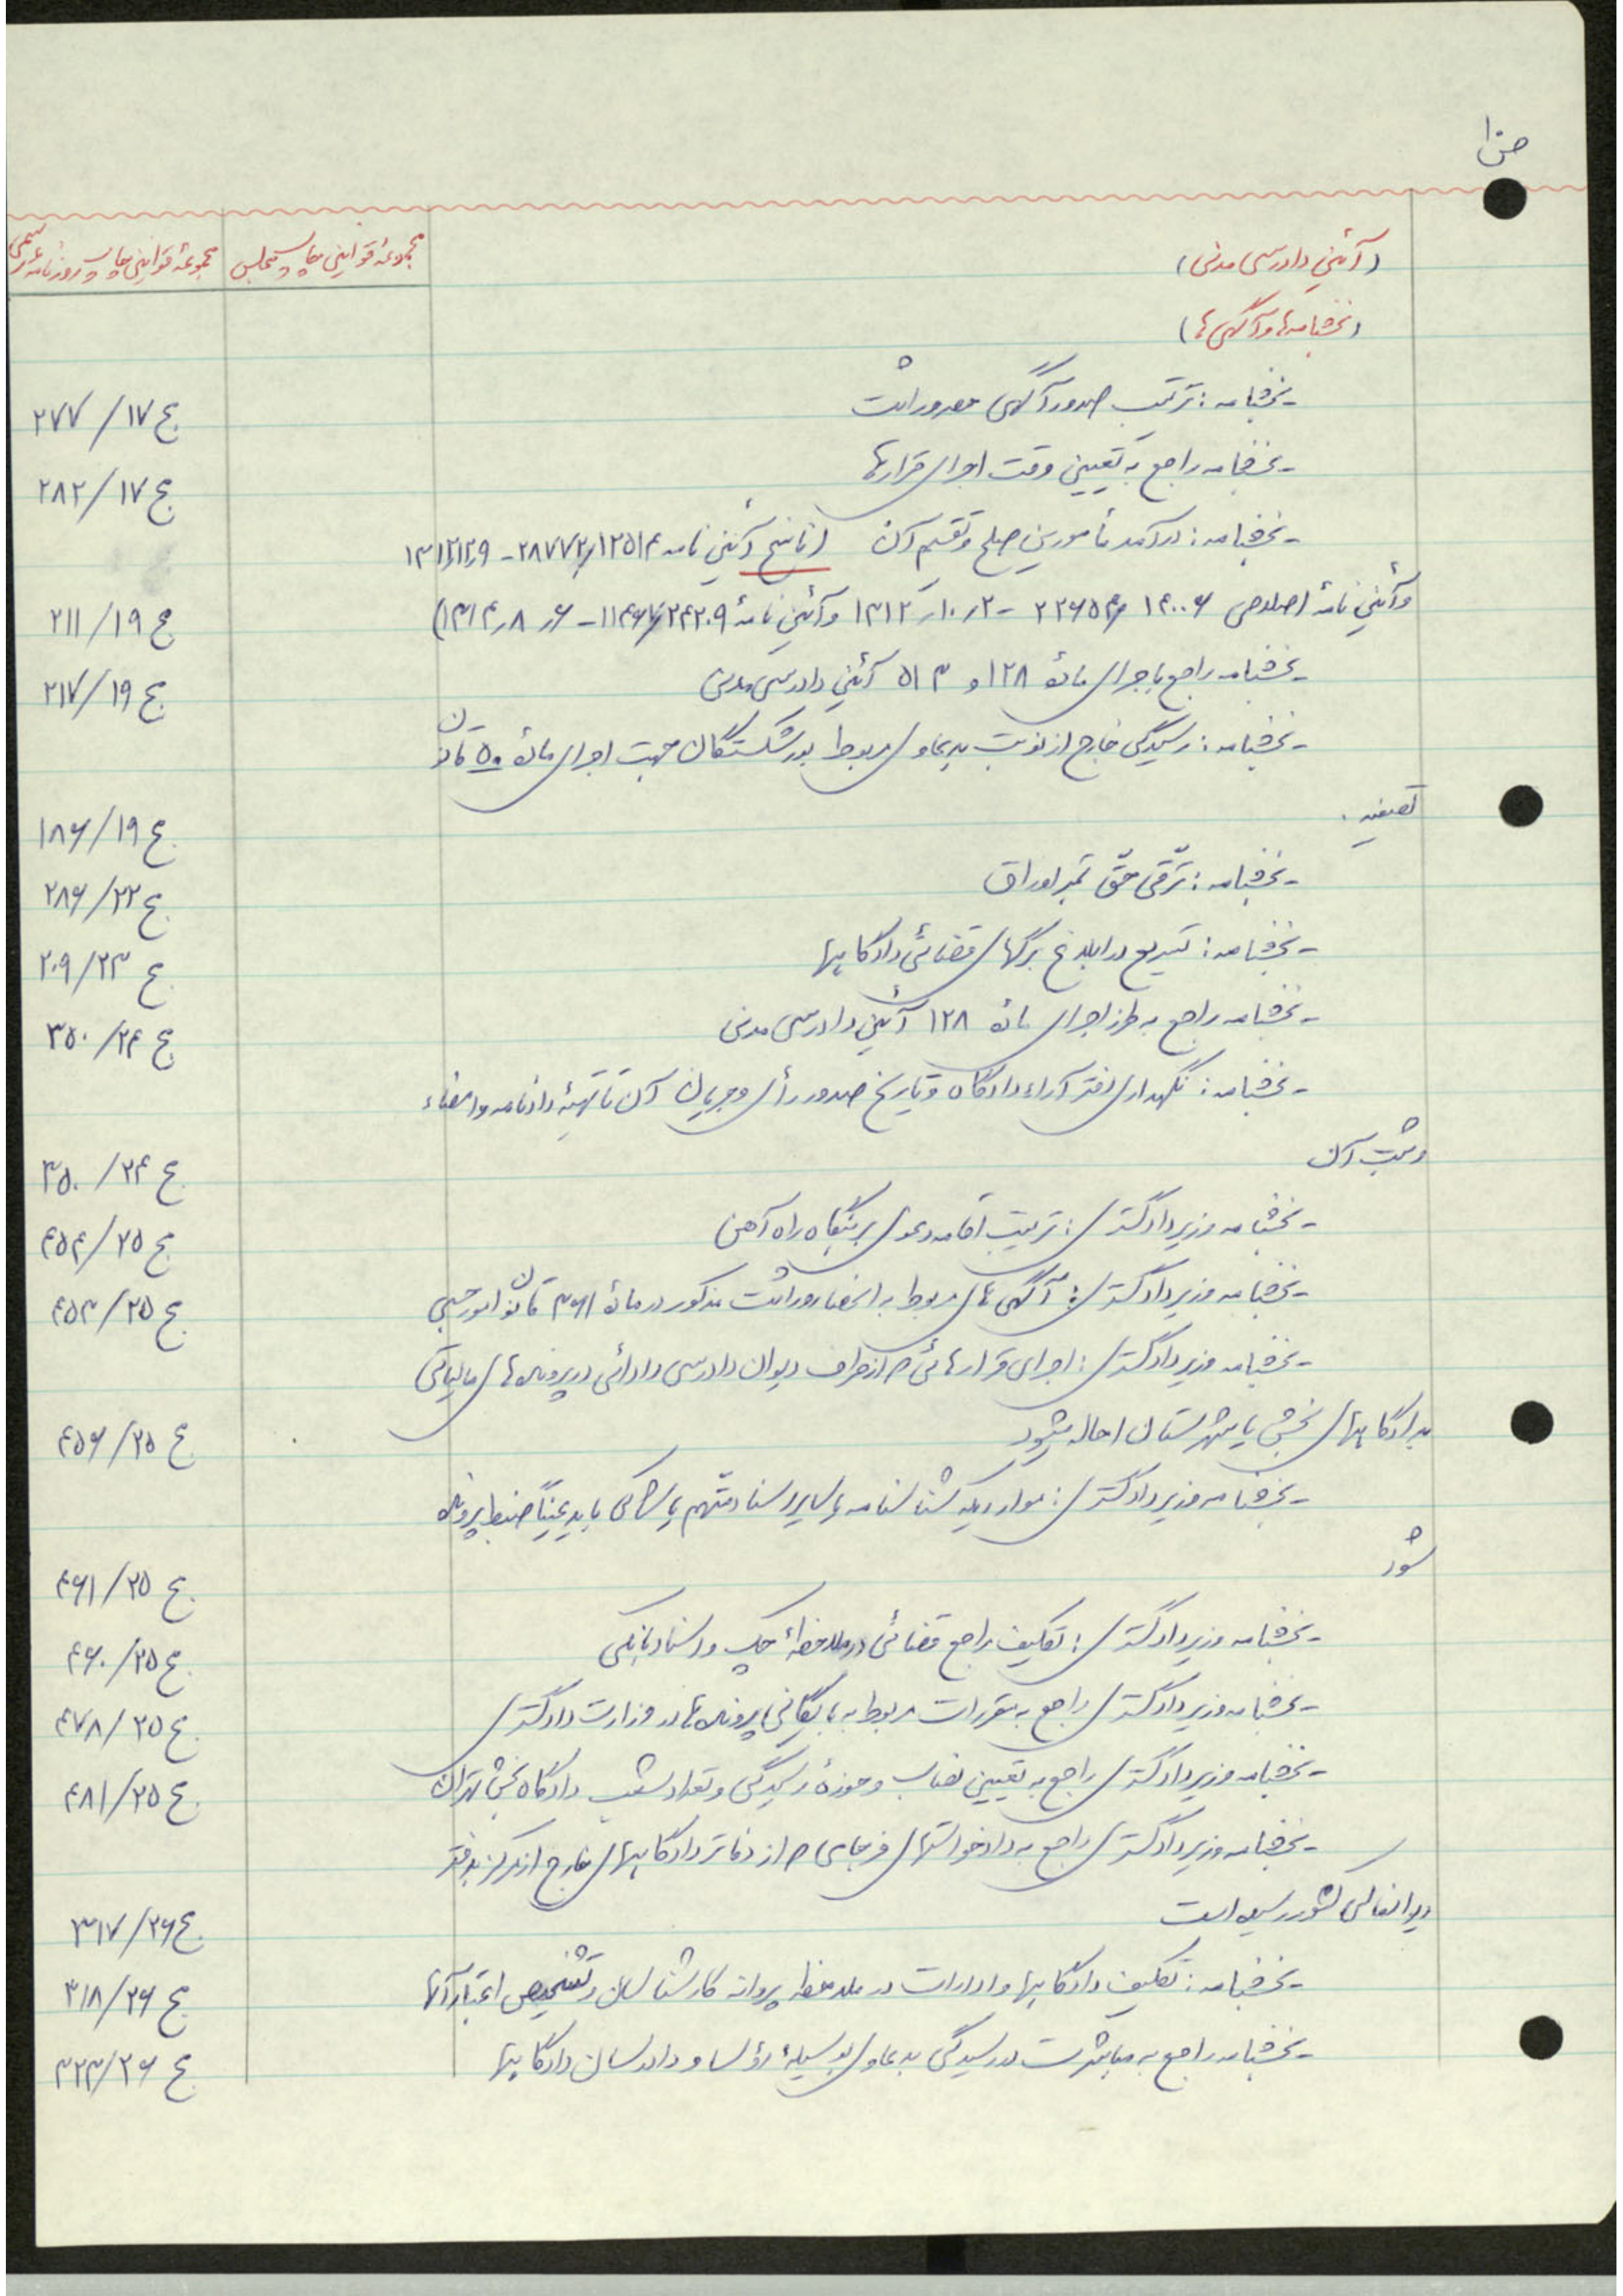 ص۱
مجموعهٔ قوانین چاپ روزنامه رسمی
مجموعهٔ قوانین چاپ مجلس
(آئین دادرسی مدنی)
(بخشنامه‌ها و آگهی‌ها)
- بخشنامه: ترتیب صدور آگهی حصر وراثت ج ۱۷/ ۲۷۷
- بخشنامه راجع به تعیین وقت اجرای قرارها ج ۱۷/ ۲۸۲
- بخشنامه: درآمد مأمورین صلح و تقسیم آن (ناسخ آئین نامه
وآئین نامهٔ اصلاحی ج ۱۹/ ۲۱۱
- بخشنامه راجع باجرای مادهٔ ۱۲۸ و ۵۱۳ آئین دادرسی مدنی ج ۱۹/ ۲۱۷
- بخشنامه: رسیدگی خارج از نوبت بدعاوی مربوط بورشکستگان جهت اجرای مادهٔ ۵۰ قانون
تصفیه. ج ۱۹/ ۱۸۶
- بخشنامه: ترقی حق تمبر اوراق ج ۲۲/ ۲۸۶
- بخشنامه: تسریع در ابلاغ برگهای قضائی دادگاهها ج ۲۳/ ۲۰۹
- بخشنامه راجع به طرز اجرای مادهٔ ۱۲۸ آئین دادرسی مدنی ج ۲۴/ ۳۵۰
- بخشنامه: نگهداری دفتر آراء دادگاه و تاریخ صدور رأی و جریان آن تا تهیهٔ دادنامه و امضاء
و ثبت آن ج ۲۴/ ۳۵۰
- بخشنامه وزیر دادگستری: ترتیب اقامه دعوی بر بنگاه راه آهن ج ۲۵/ ۴۵۴
- بخشنامه وزیر دادگستری: آگهی های مربوط به انحصار وراثت مذکور در مادهٔ ۳۶۱ قانون امور حسبی ج ۲۵/ ۴۵۳
- بخشنامه وزیر دادگستری: اجرای قرارهائی که از طرف دیوان دادرسی دارائی در پرونده های مالیاتی
بدادگاههای بخش یا شهرستان احاله میشود ج ۲۵/ ۴۵۶
- بخشنامه وزیر دادگستری: مواردیکه شناسنامه یا سایر اسناد متهم یا شاکی باید عیناً ضبط پرونده
شود ج ۲۵/ ۴۶۱
- بخشنامه وزیر دادگستری: تکلیف مراجع قضائی در ملاحظهٔ چک و اسناد بانکی ج ۲۵/ ۴۶۰
- بخشنامه وزیر دادگستری راجع به مقررات مربوط به بایگانی پرونده ها در وزارت دادگستری ج ۲۵/ ۴۷۸
- بخشنامه وزیر دادگستری راجع به تعیین نصاب و حوزهٔ رسیدگی و تعداد شعب دادگاه بخش تهران ج ۲۵/ ۴۸۱
- بخشنامه وزیر دادگستری راجع به دادخواستهای فرجامی که از دفاتر دادگاههای خارج از مرکز بدفتر
دیوانعالی کشور رسیده است ج ۲۶/ ۳۱۷
- بخشنامه: تکلیف دادگاهها و ادارات در ملاحظه پروانه کارشناسان و تشخیص اعتبار آنها ج ۲۶/ ۳۱۸
- بخشنامه راجع به مباشرت در رسیدگی بدعاوی بوسیلهٔ رؤسا و دادرسان دادگاهها ج ۲۶/ ۳۲۳